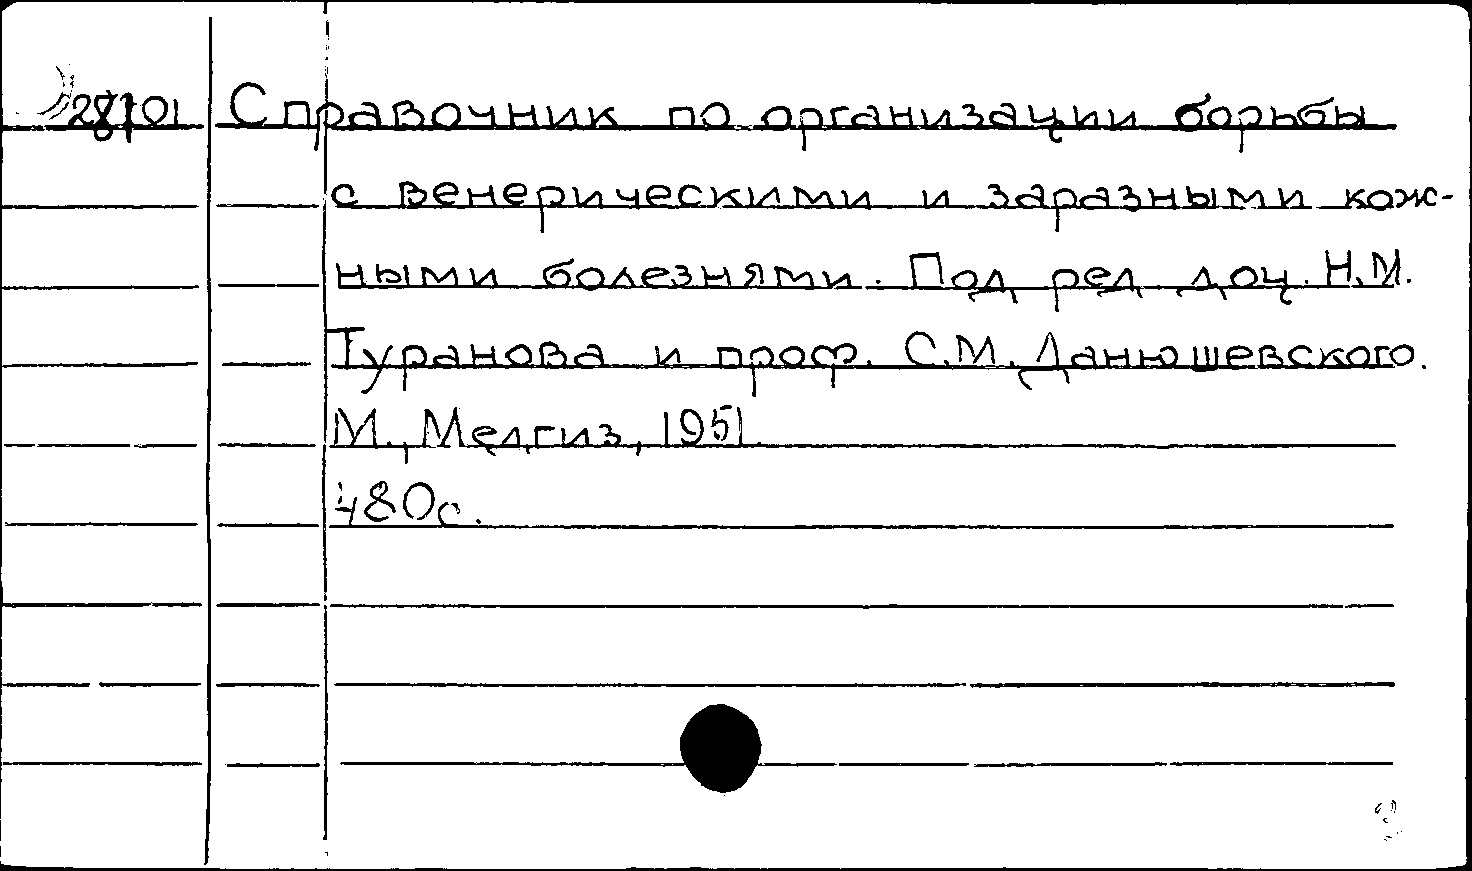 28701 Справочник по организации борьбы
с венерическими и заразными кож-
ными болезнями. Под ред доц. Н.М.
Туранова и проф. С.М. Данюшевского.
М., Медгиз, 1951.
480с.